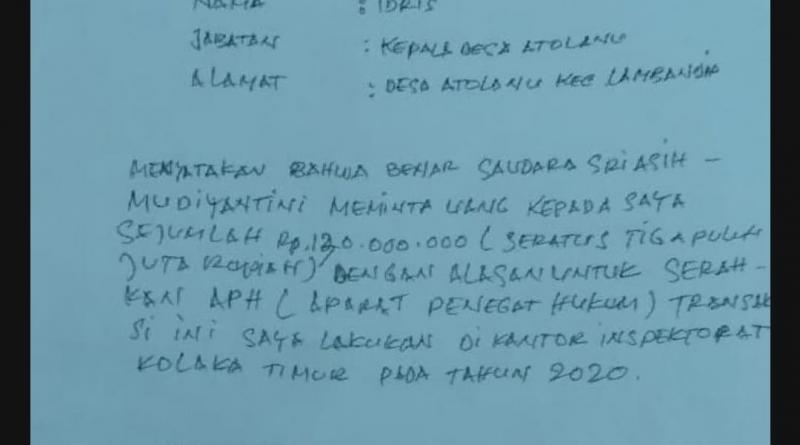 NAMA : IDRIS
JABATAN : KEPALA DESA ATOLANU
ALAMAT : DESA ATOLANU KEC LAMBANDIA
MENYATAKAN BAHWA BENAR SAUDARA SRI ASIH -
MUDIYANTINI MEMINTA UANG KEPADA SAYA
SEJUMLAH Rp.130.000.000 ( SERATUS TIGA PULUH
JUTA RUPIAH) DENGAN ALASAN UNTUK SERAH -
KAN APH ( APARAT PENEGAT HUKUM) TRANSAK
SI INI SAYA LAKUKAN DI KANTOR INSPEKTORAT
KOLAKA TIMUR PADA TAHUN 2020.